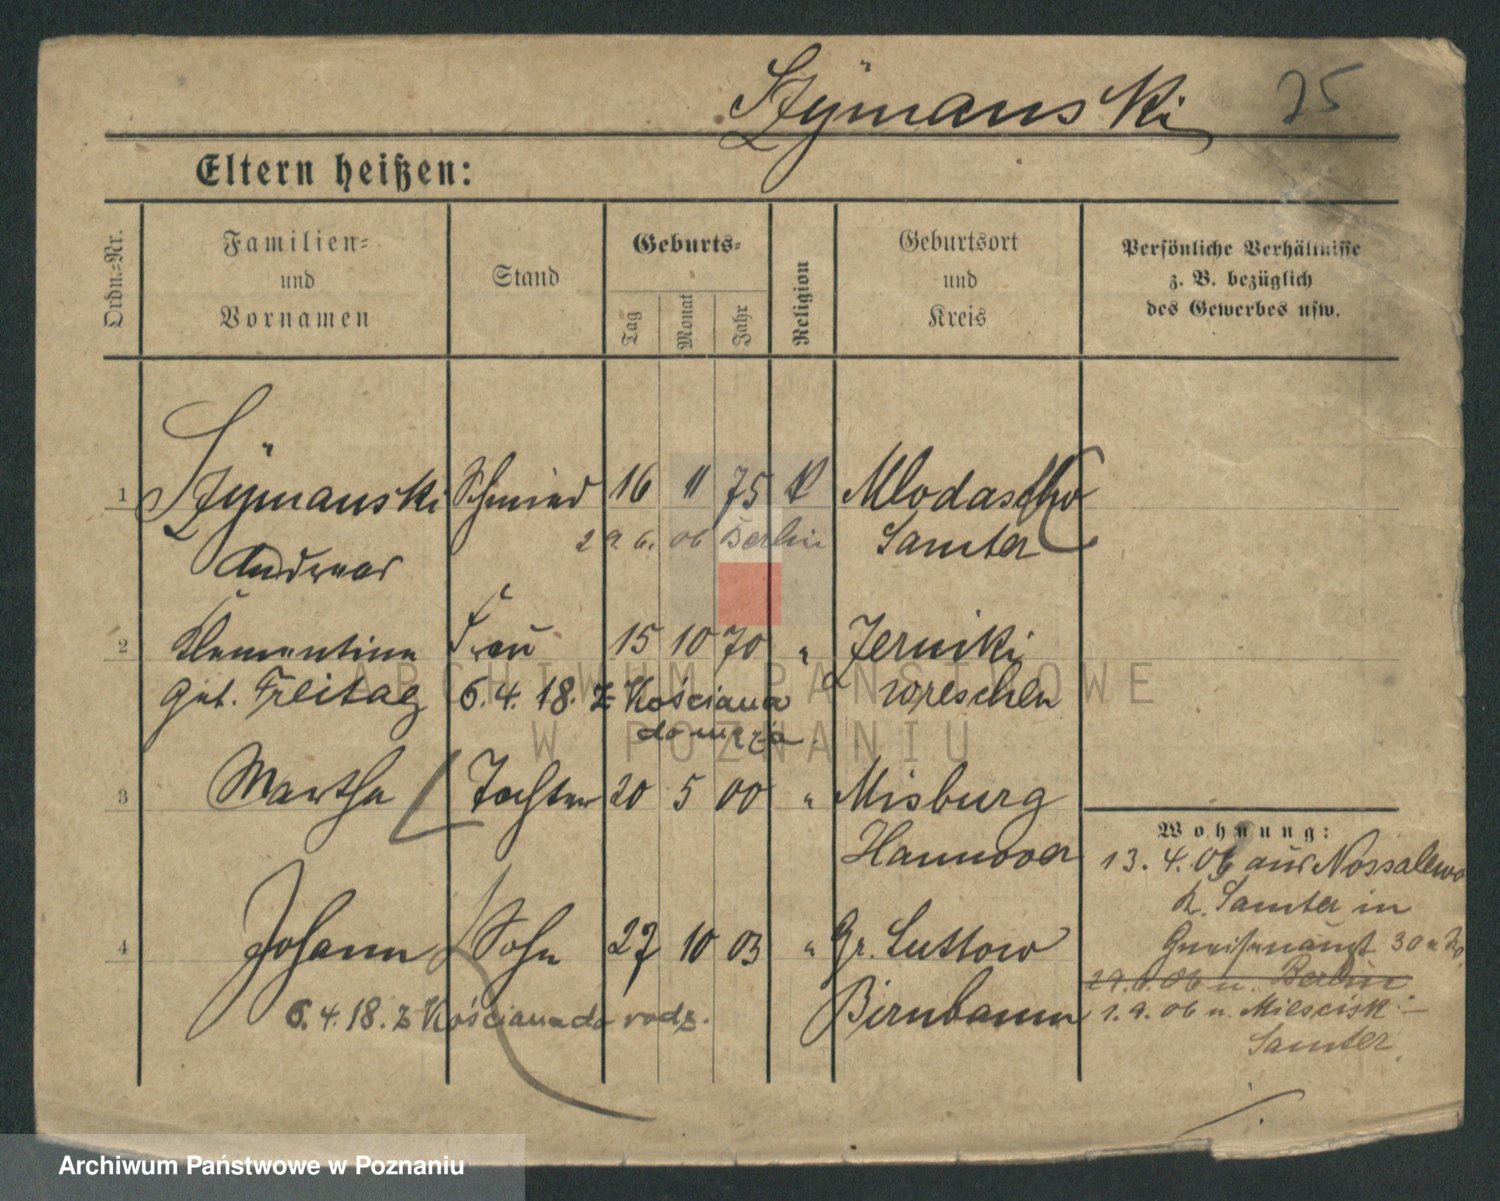 Szÿmanski 75
Eltern heißen:
Ordn.-Nr.
Familien-
und
Vornamen
Stand
Geburts-
Tag
Monat
Jahr
Religion
Geburtsort
und
Kreis
Persönliche Verhältnisse
z. B. bezüglich
des Gewerbes usw.
1 Szÿmanski Schmied 16 11 75 K Mlodasko
Andreas 29. 6. 06 Berlin Samter
2 Klementine Frau 15 10 70 " Zerniki
geb. Freitag 6. 4. 18. z Kościana Wreschen
do męża
3 Martha Tochter 20 5 00 " Misburg
Hannover
4 Johann Sohn 27 10 03 " Gr. Luttow
6. 4. 18. z Kościana do rodz. Birnbaum
Wohnung:
13. 4. 06 aus Nossalewo
K. Samter in
29. 6. 06 n. Berlin
1. 9. 06 n. Miescisk
Samter
ARCHIWUM PAŃSTWOWE
W POZNANIU
Archiwum Państwowe w Poznaniu